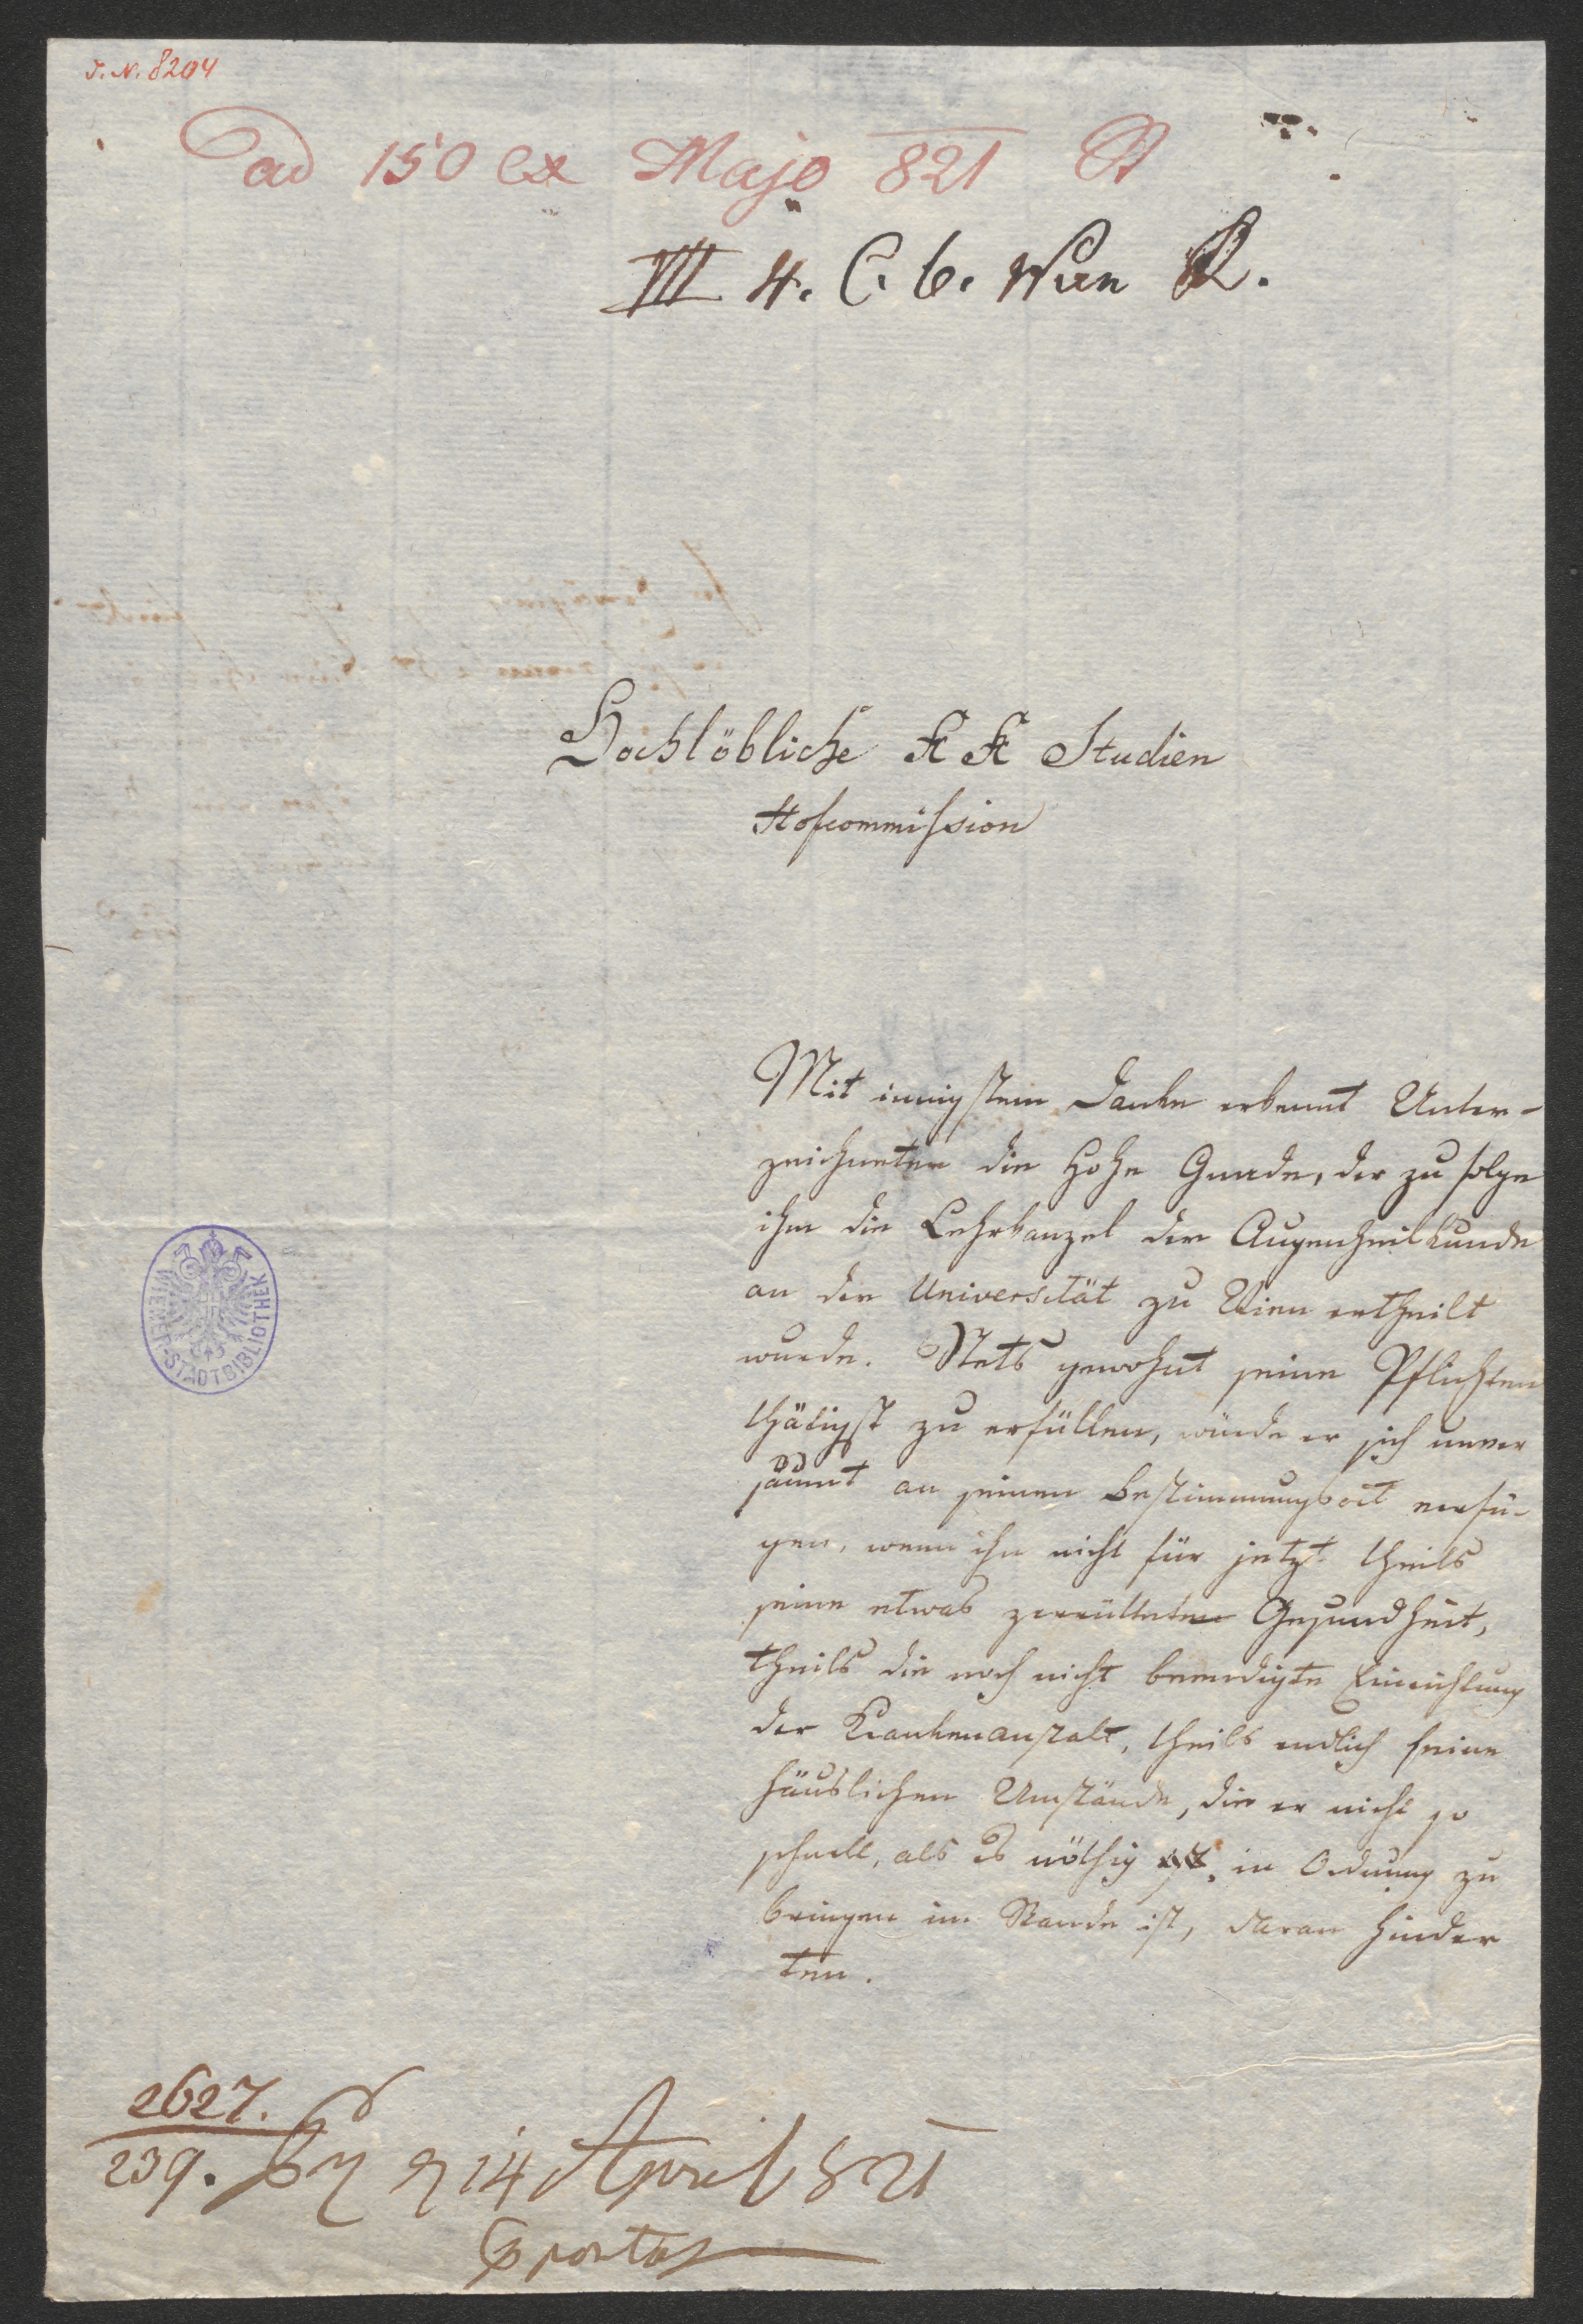 J. N. 8204
ad 150 ex Majo 821
III 4. C. b. Wien R.
Hochlöbliche K K Studien
Hofcommission
Mit innigstem Danke erkennt Unter-
zeichneter die Hohe Gnade, der zu folge
ihm die Lehrkanzel der Augenheilkunde
an der Universität zu Wien ertheilt
wurde. Stets gewohnt seine Pflichten
thätigst zu erfüllen, würde er sich unver
säumt an seinen Bestimmungsort verfü-
gen, wenn ihn nicht für jetzt theils
seine etwas zerrüttete Gesundheit,
theils die noch nicht beendigte Einrichtung
der Krankenanstalt, theils endlich seine
häuslichen Umstände, die er nicht so
schnell, als es nöthig ist, in Ordnung zu
bringen im Stande ist, daran hinder
ten.
WIENER-STADTBIBLIOTHEK
2627.
239. 14 April 821